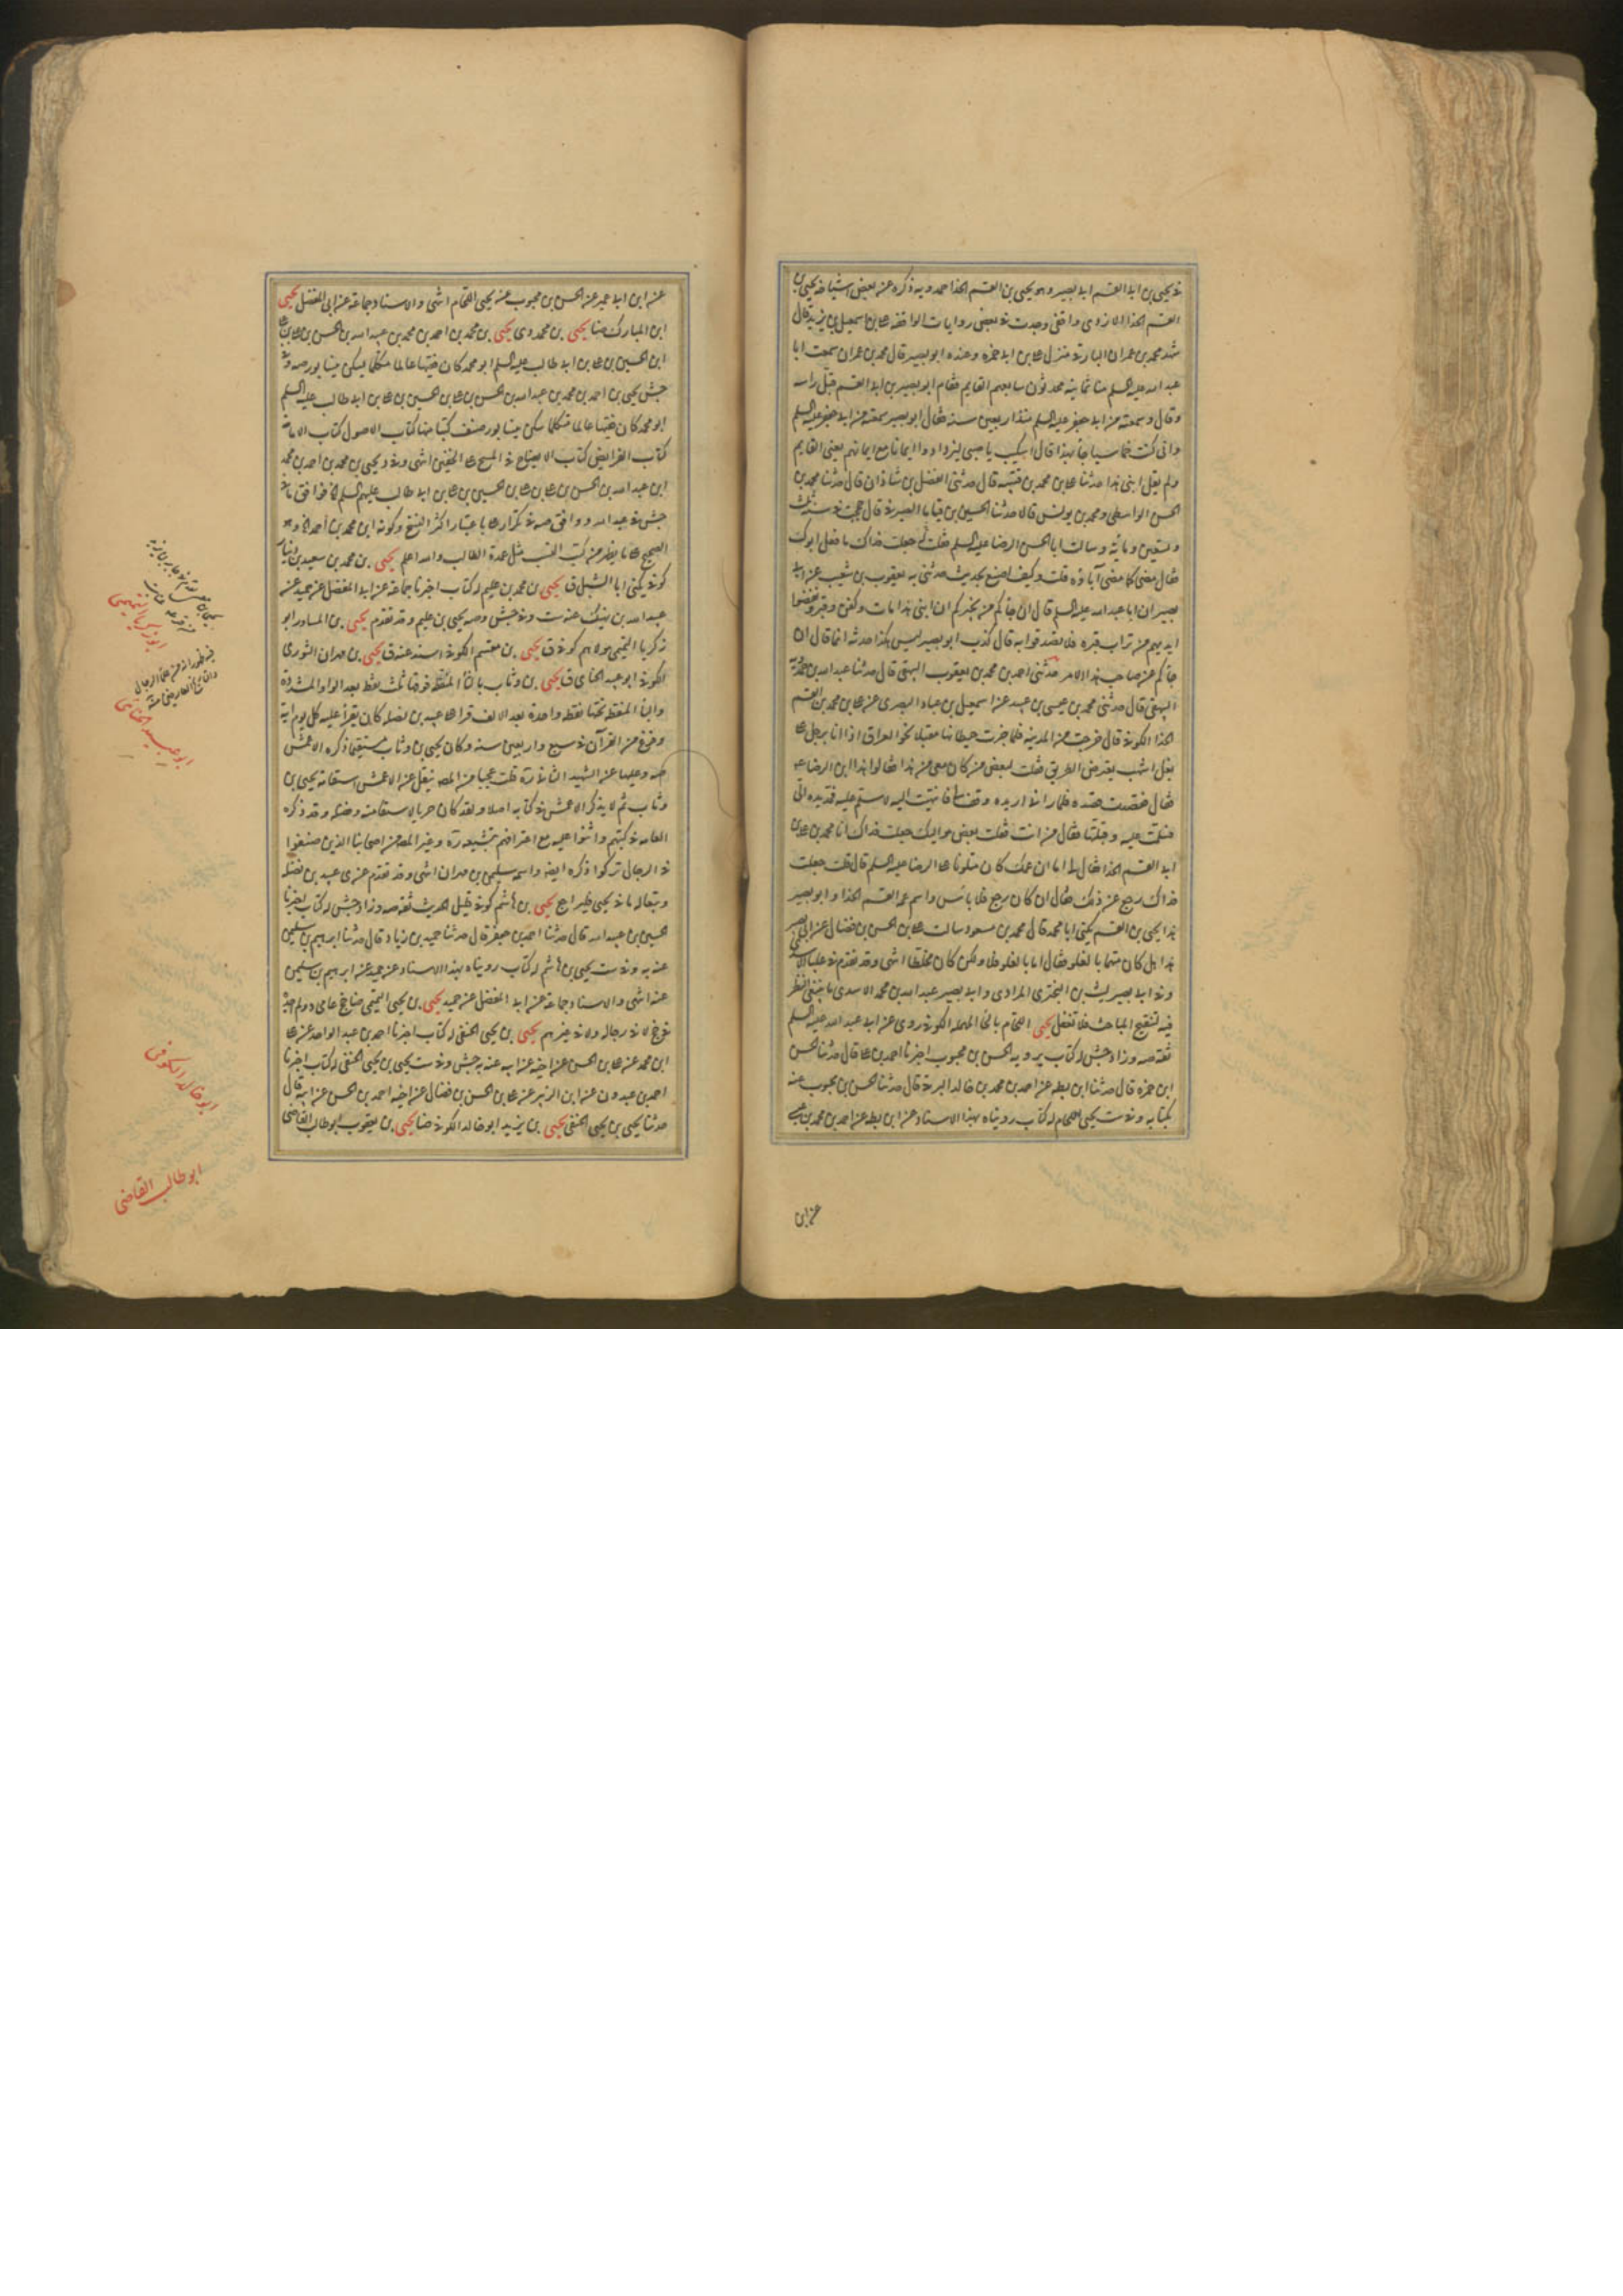 في يحيى بن ابي القسم ابي بصير وهو يحيى بن القسم الحذا حمدويه ذكره عن بعض اشياخه يحيى بن
القسم الحذا الازدي واقفي وجدت في بعض روايات الواقفه علي بن اسمعيل بن يزيد قال
شهد محمد بن عمران البارقي منزل علي بن ابي حمزه وعنده ابو بصير قال محمد بن عمران سمعت ابا
عبد الله عليه السلم منا ثمانية محدثون سابعهم القايم فقام ابو بصير بن ابي القسم فقبل راسه
وقال وسمعته من ابي جعفر عليه السلم منذ اربعين سنه فقال ابو بصير سمعته من ابي جعفر عليه السلم
واني كنت خماسيا جاء بهذا قال اسكت يا صبي ليزدادوا ايمانا مع ايمانهم يعني القايم
ولم يقل ابني هذا حدثنا علي بن محمد بن قتيبه قال حدثني الفضل بن شاذان قال حدثنا محمد بن
الحسن الواسطي ومحمد بن يونس قالا حدثنا الحسين بن قياما الصيرفي قال حججت في سنه ثلث
وتسعين ومائة وسالت ابا الحسن الرضا عليه السلم فقلت جعلت فداك ما فعل ابوك
فقال مضى كما مضى آباؤه قلت وكيف اصنع بحديث حدثني به يعقوب بن شعيب عن ابي
بصير ان ابا عبد الله عليه السلم قال ان جاءكم من يخبركم ان ابني هذا مات وكفن وقبر ونفضوا
ايديهم من تراب قبره فلا تصدقوا به قال كذب ابو بصير ليس هكذا حدثه انما قال ان
جاءكم عن صاحب هذا الامر حدثني احمد بن محمد بن يعقوب البيهقي قال حدثنا عبد الله بن حمدويه
البيهقي قال حدثني محمد بن عيسى بن عبيد عن اسمعيل بن عباد البصري عن علي بن محمد بن القسم
الحذا الكوفي قال خرجت من المدينه فلما جزت حيطانها مقبلا نحو العراق اذا انا برجل على
بغل اشهب يعترض الطريق فقلت لبعض من كان معي من هذا فقالوا هذا ابن الرضا ع
فقال فقصدت قصده فلما رآني اريده وقف لي فانتهيت اليه لاسلم عليه فمد يده الي
فسلمت عليه وقبلتها فقال من انت فقلت بعض مواليك جعلت فداك انا محمد بن علي بن
ابي القسم الحذا فقال لي اما ان عمك كان ملتويا على الرضا عليه السلم قال قلت جعلت
فداك رجع عن ذلك فقال ان كان رجع فلا باس واسم عمه القسم الحذا وابو بصير
هذا يحيى بن القسم يكنى ابا محمد قال محمد بن مسعود سالت علي بن الحسن بن فضال عن ابي بصير
هذا هل كان متهما بالغلو فقال اما بالغلو فلا ولكن كان مخلطا انتهى وقد تقدم في علباء الاسدي
وفي ابي بصير ليث بن البختري المرادي وابي بصير عبد الله بن محمد الاسدي ما ينبغي النظر
فيه لتنقيح المباحث فلا تغفل يحيى اللحام بالحاء المهمله الكوفي روى عن ابي عبد الله عليه السلم
ثقه صه وزاد جش له كتاب يرويه الحسن بن محبوب اخبرنا احمد بن علي قال حدثنا الحسن
ابن حمزه قال حدثنا ابن بطه عن احمد بن محمد بن خالد البرقي قال حدثنا الحسن بن محبوب عنه
بكتابه وفي ست يحيى اللحام له كتاب رويناه بهذا الاسناد عن ابن بطه عن احمد بن محمد بن عيسى
عن ابن
عن ابن ابي عمير عن الحسن بن محبوب عن يحيى اللحام انتهى والاسناد جماعة عن ابي المفضل يحيى
ابن المبارك ضا يحيى بن محمد دي يحيى بن محمد بن احمد بن محمد بن عبد الله بن الحسن بن علي بن علي
ابن الحسين بن علي بن ابي طالب عليه السلم ابو محمد كان فقيها عالما متكلما يسكن نيشابور صه وفي
جش يحيى بن احمد بن محمد بن عبد الله بن الحسن بن علي بن الحسين بن علي بن ابي طالب عليه السلم
ابو محمد كان فقيها عالما متكلما سكن نيشابور صنف كتبا منها كتاب الاصول كتاب الامامة
كتاب الفرايض كتاب الايضاح في المسح على الخفين انتهى وفي د يحيى بن محمد بن احمد بن محمد
ابن عبد الله بن الحسن بن علي بن علي بن الحسين بن علي بن ابي طالب عليهم السلم فوافق ما في
جش في عبد الله ووافق صه في تكرار علي باعتبار اكثر النسخ وكونه ابن محمد بن احمد
الصحيح على ما يظهر من كتب النسب مثل عمدة الطالب والله اعلم يحيى بن محمد بن سعيد بن دينار
كوفي يكنى ابا الشبل ق يحيى بن محمد بن عليم له كتاب اخبرنا جماعة عن ابي المفضل عن حميد عن
عبد الله بن نهيك عنه ست وفي جش وصه يحيى بن عليم وقد تقدم يحيى بن المساور ابو
زكريا التميمي مولاهم كوفي ق يحيى بن مقسم الكوفي اسند عنه ق يحيى بن مهران الثوري
الكوفي ابو عبيد الحناي ق يحيى بن وثاب بالثاء المنقطه فوقها ثلث نقط بعد الواو المشددة
والباء المنقطه تحتها نقطه واحدة بعد الالف قرا على عبيد بن نضله كان يقرأ عليه كل يوم اية
وفرغ من القرآن في سبع واربعين سنه وكان يحيى بن وثاب مستقيما ذكره الاعمش
صه وعليها عن الشهيد الثاني ره قلت عجبا من المصه ينقل عن الاعمش استقامة يحيى بن
وثاب ثم لا يذكر الاعمش في كتابه اصلا ولقد كان حريا لاستقامته وفضله وقد ذكره
العامه في كتبهم واثنوا عليه مع اعترافهم بتشيعه ره وغير المصه من اصحابنا الذين صنفوا
في الرجال تركوا ذكره ايضا واسمه سليمن بن مهران انتهى وقد تقدم عن ي عبيد بن نضله
وبقاله ما في يحيى فليراجع يحيى بن هاشم كوفي قليل الحديث ثقه صه وزاد جش له كتاب اخبرنا
الحسين بن عبد الله قال حدثنا احمد بن جعفر قال حدثنا حميد بن زياد قال حدثنا ابراهيم بن سليمن
عنه به وفي ست يحيى بن هاشم له كتاب رويناه بهذا الاسناد عن حميد عن ابراهيم بن سليمن
عنه انتهى والاسناد جماعة عن ابي المفضل عن حميد يحيى بن يحيى التميمي ضا جخ عامي د ولم اجده
في جخ لا في رجاله ولا في غيرهم يحيى بن يحيى الحنفي له كتاب اخبرنا احمد بن عبد الواحد عن علي
ابن محمد عن علي بن الحسن عن اخيه عن ابيه عنه به جش وفي ست يحيى بن يحيى الحنفي له كتاب اخبرنا
احمد بن عبدون عن ابن الزبير عن علي بن الحسن بن فضال عن اخيه احمد بن الحسن عن ابيه قال
حدثنا يحيى بن يحيى الحنفي يحيى بن يزيد ابو خالد الكوفي ضا يحيى بن يعقوب ابو طالب القاضي
ابو زكريا التميمي
ابو عبيد الحناي
ابو خالد الكوفي
ابو طالب القاضي